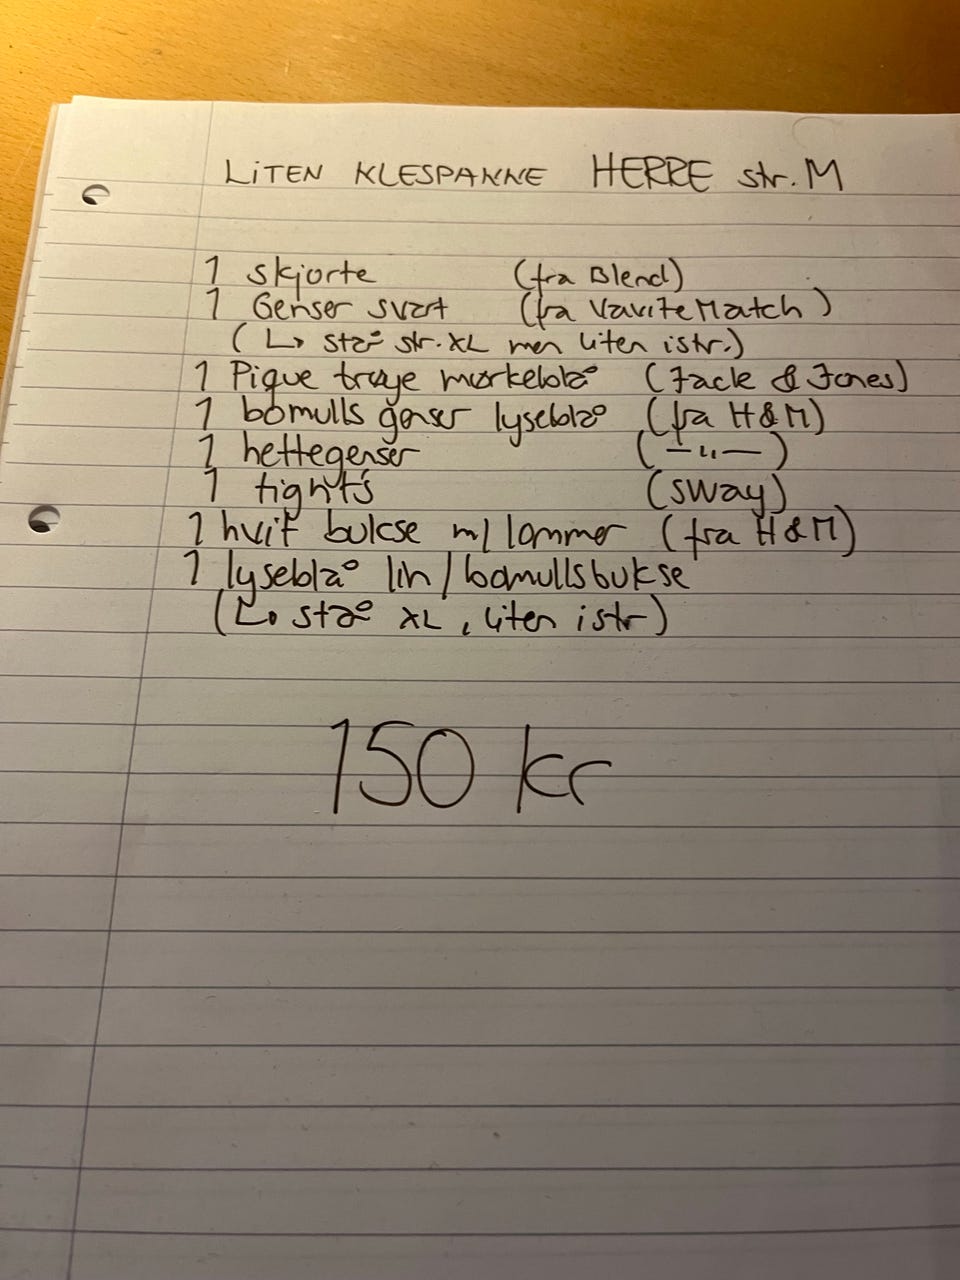 LITEN KLESPAKKE HERRE str. M
1 skjorte (fra Blend)
1 Genser svart (fra VaviteMatch)
(↳ står str. XL men liten i str.)
1 Pique trøye mørkeblå (Jack & Jones)
1 bomulls genser lyseblå (fra H&M)
1 hettegenser (—"—)
1 tights (sway)
1 hvit bukse m/ lommer (fra H&M)
1 lyseblå lin/bomullsbukse
(↳ står XL, liten i str)
150 kr